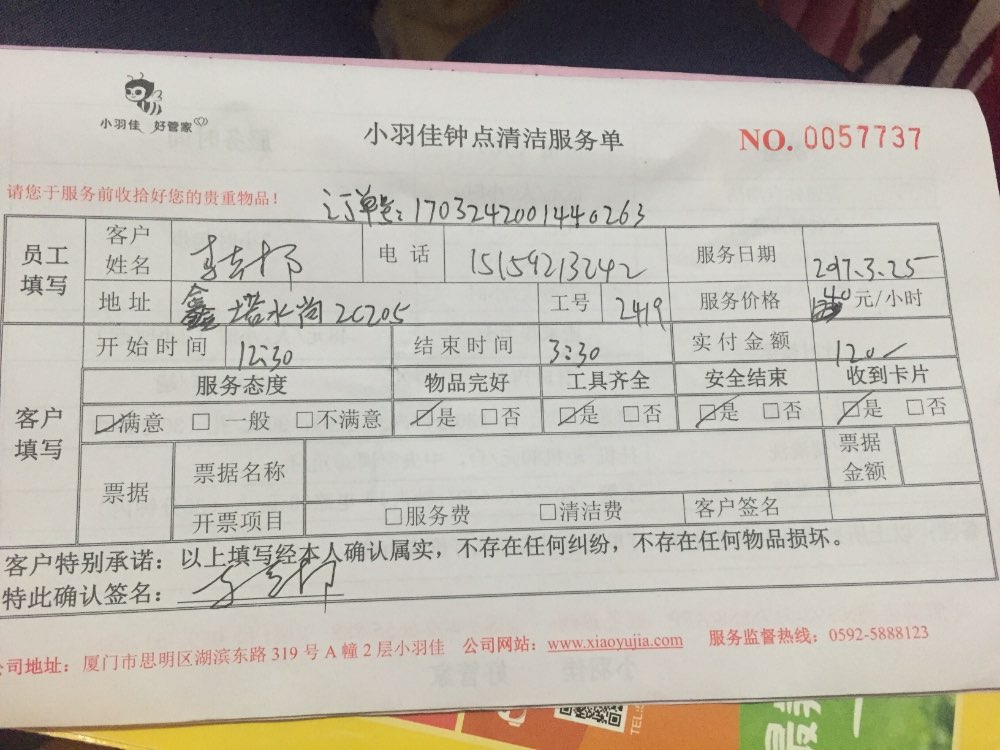 小羽佳 好管家
小羽佳钟点清洁服务单
NO. 0057737
请您于服务前收拾好您的贵重物品！
订单号：1703242001440263
员工填写
客户姓名
电 话 15159213242
服务日期 2017.3.25
地 址 鑫塔水尚2C205
工号 2419
服务价格 40元/小时
客户填写
开始时间 12:30
结束时间 3:30
实付金额 120
服务态度 物品完好 工具齐全 安全结束 收到卡片
☑满意 □ 一般 □不满意 ☑是 □否 ☑是 □否 ☑是 □否 ☑是 □否
票据
票据名称
票据金额
开票项目 □服务费 □清洁费 客户签名
客户特别承诺：以上填写经本人确认属实，不存在任何纠纷，不存在任何物品损坏。
特此确认签名：
公司地址：厦门市思明区湖滨东路 319 号 A 幢 2 层小羽佳 公司网站：www.xiaoyujia.com 服务监督热线：0592-5888123